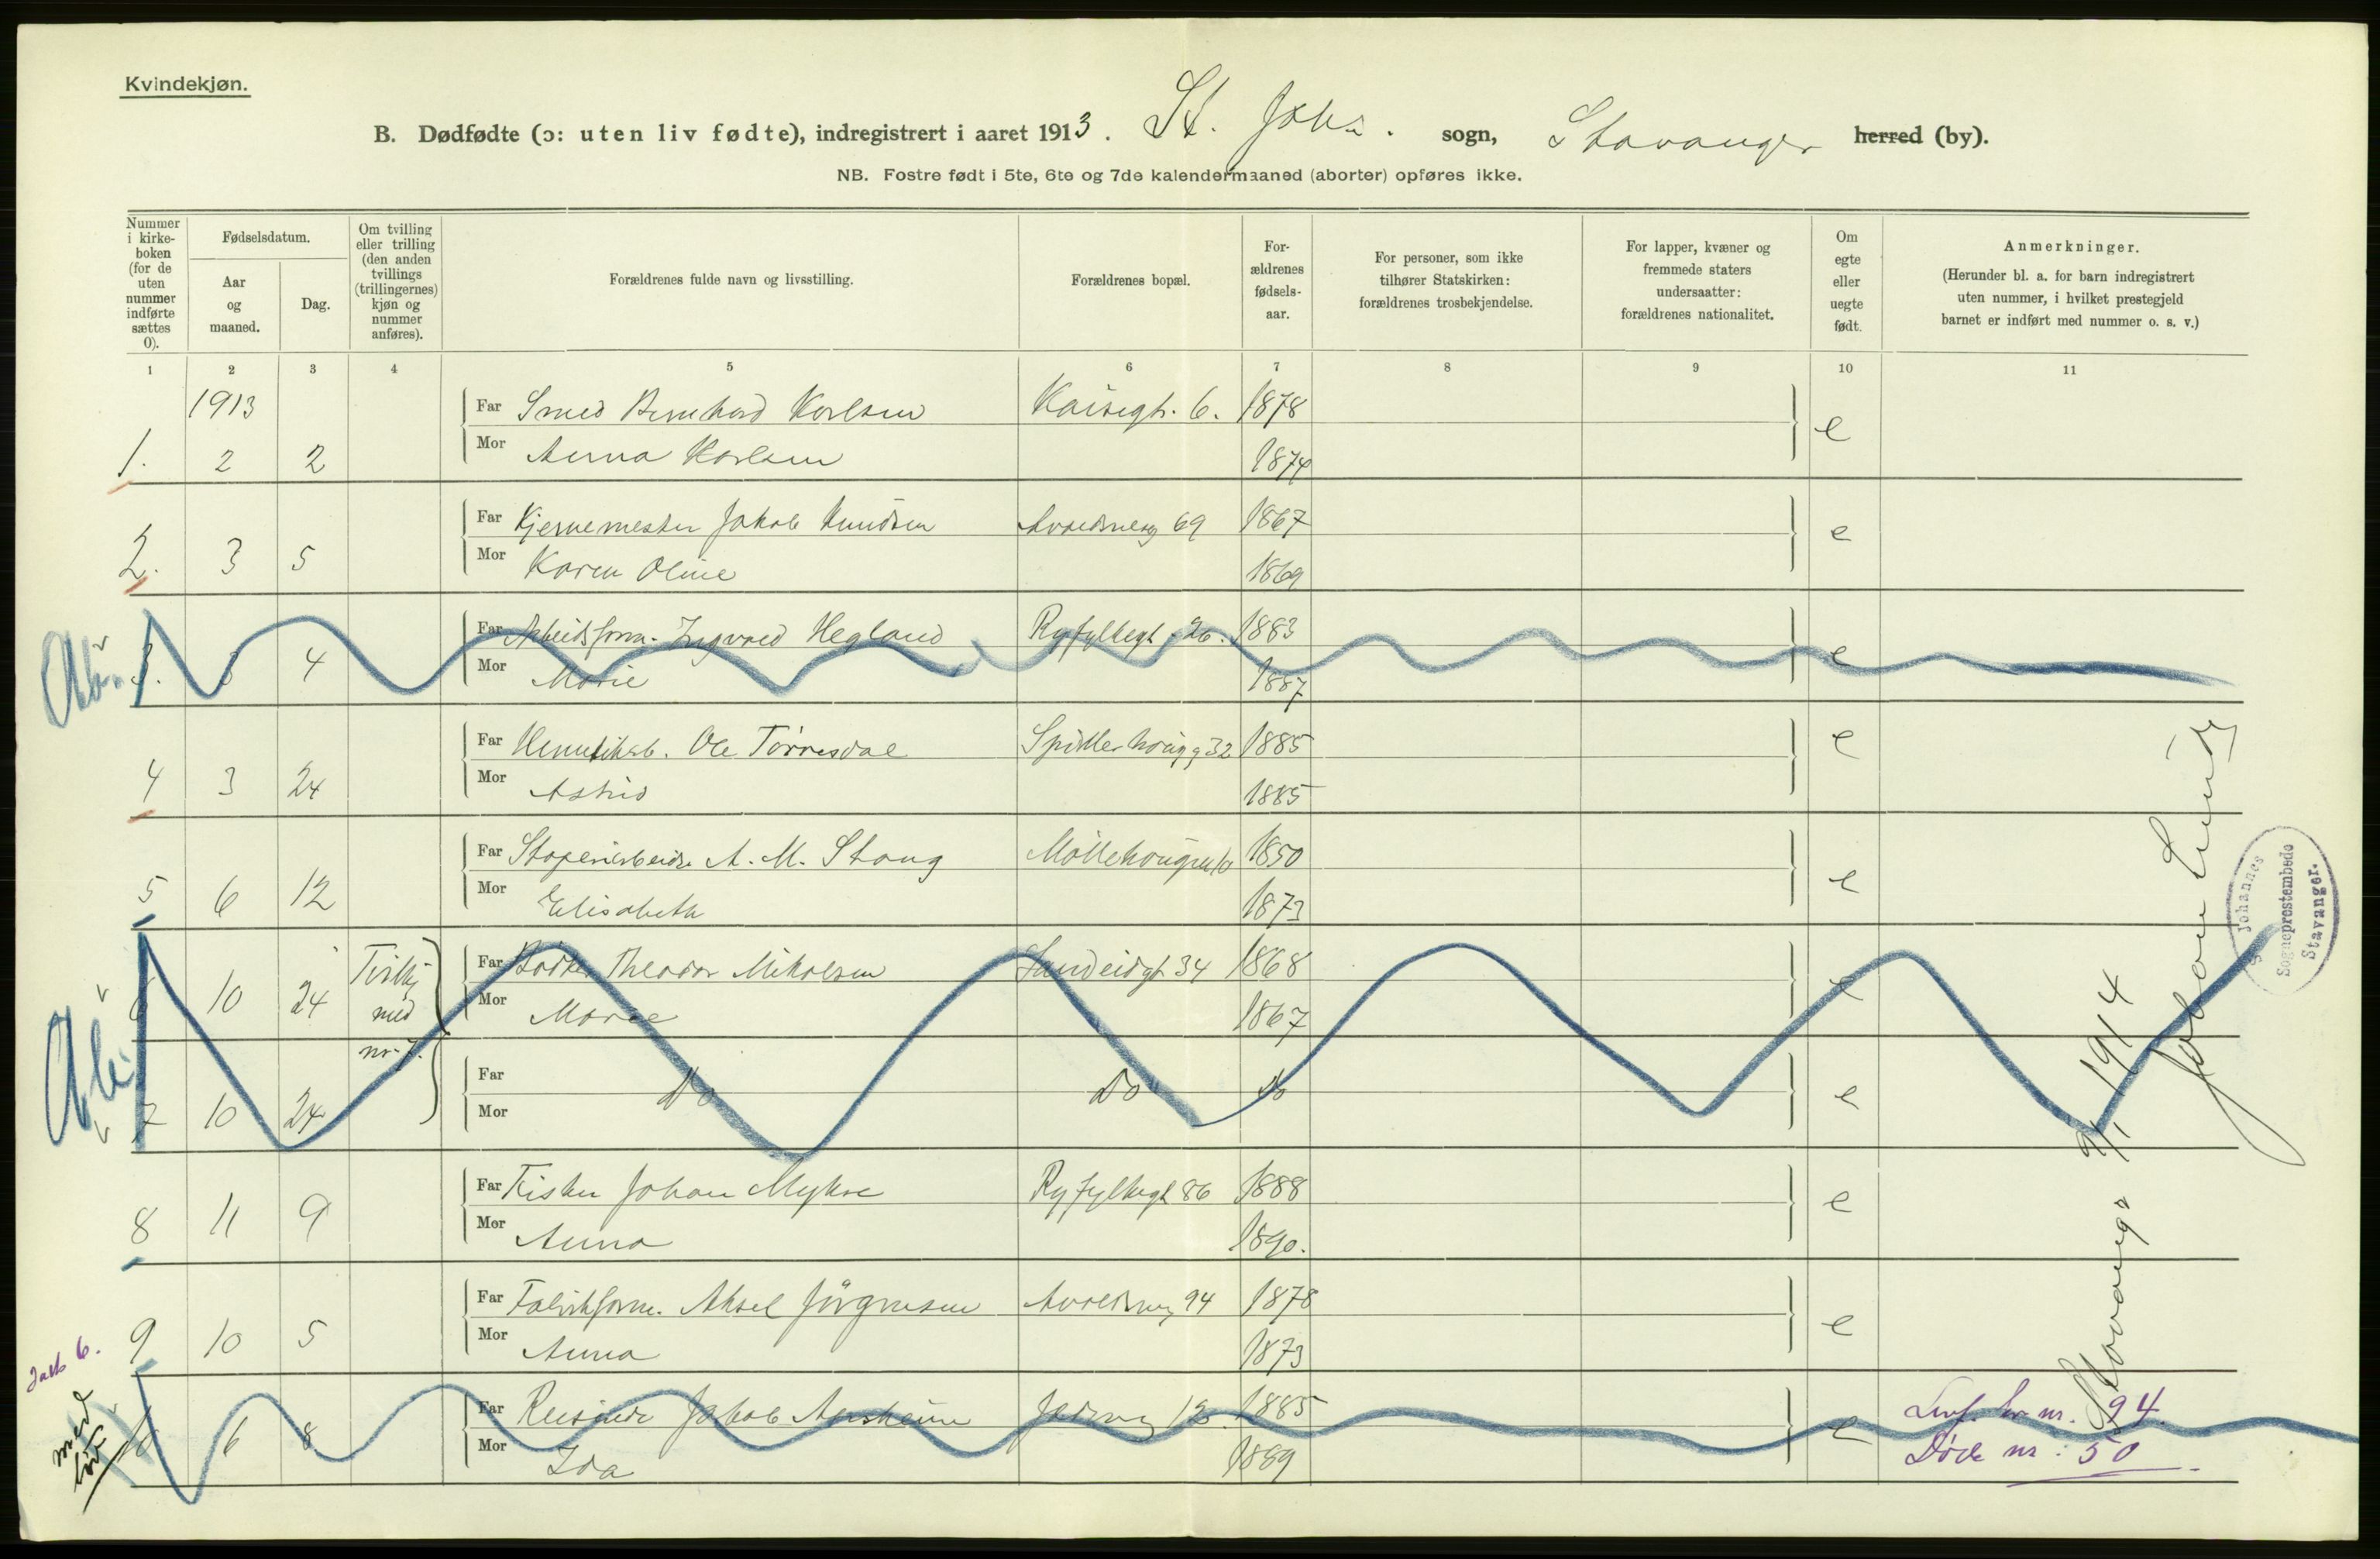 Kvindekjøn.
B. Dødfødte (ɔ: uten liv fødte), indregistrert i aaret 1913. St. Johs. sogn, Stavanger herred (by).
NB. Fostre født i 5te, 6te og 7de kalendermaaned (aborter) opføres ikke.
Nummer i kirke-boken (for de uten nummer indførte sættes 0).
Fødselsdatum.
Aar og maaned.
Dag.
Om tvilling eller trilling (den anden tvillings (trillingernes) kjøn og nummer anføres).
Forældrenes fulde navn og livsstilling.
Forældrenes bopæl.
For-ældrenes fødsels-aar.
For personer, som ikke tilhører Statskirken: forældrenes trosbekjendelse.
For lapper, kvæner og fremmede staters undersaatter: forældrenes nationalitet.
Om egte eller uegte født.
Anmerkninger.
(Herunder bl. a. for barn indregistrert uten nummer, i hvilket prestegjeld barnet er indført med nummer o. s. v.)
1 2 3 4 5 6 7 8 9 10 11
1913
Far Smed Bernhard Karlsen Kaisegt. 6. 1878 e
1. 2 2 Mor Anna Karlsen 1874
Far Kjernemester Jakob Knudsen Avaldsneg 69 1867 e
2. 3 5 Mor Karen Oline 1869
Far Arbeidsform. Ingvald Hegland Ryfylkegt. 26. 1883 e
3. 3 4 Mor Marie 1887
Far Ole Tørresdal 32 1885 e
4 3 24 Mor Astrid 1885
Far A. M. Stang Møllehougen 10 1850
5 6 12 Mor Elisabeth 1873 e
Tvill. Far Bødker Theodor Mikalsen Sandeidgt 34 1868 e
6 10 24 med Mor Marie 1867
nr. 7. Far
Do Do Do e
7 10 24 Mor
Far Fisker Johan Myhre Ryfylkegt 86 1888 e
8 11 9 Mor Anna 1890.
Far Fabrikform. Aksel Jörgensen Avaldsneg 94 1878 e
9 10 5 Mor Anna 1873
Far Reisende Jakob Jadarveg 13. 1885 e nr. 94.
10 6 8 Mor Ida 1889 Døde nr: 50
Stavanger 9/1 1914
Johan Lund
Johannes
Sogneprestembede
Stavanger.